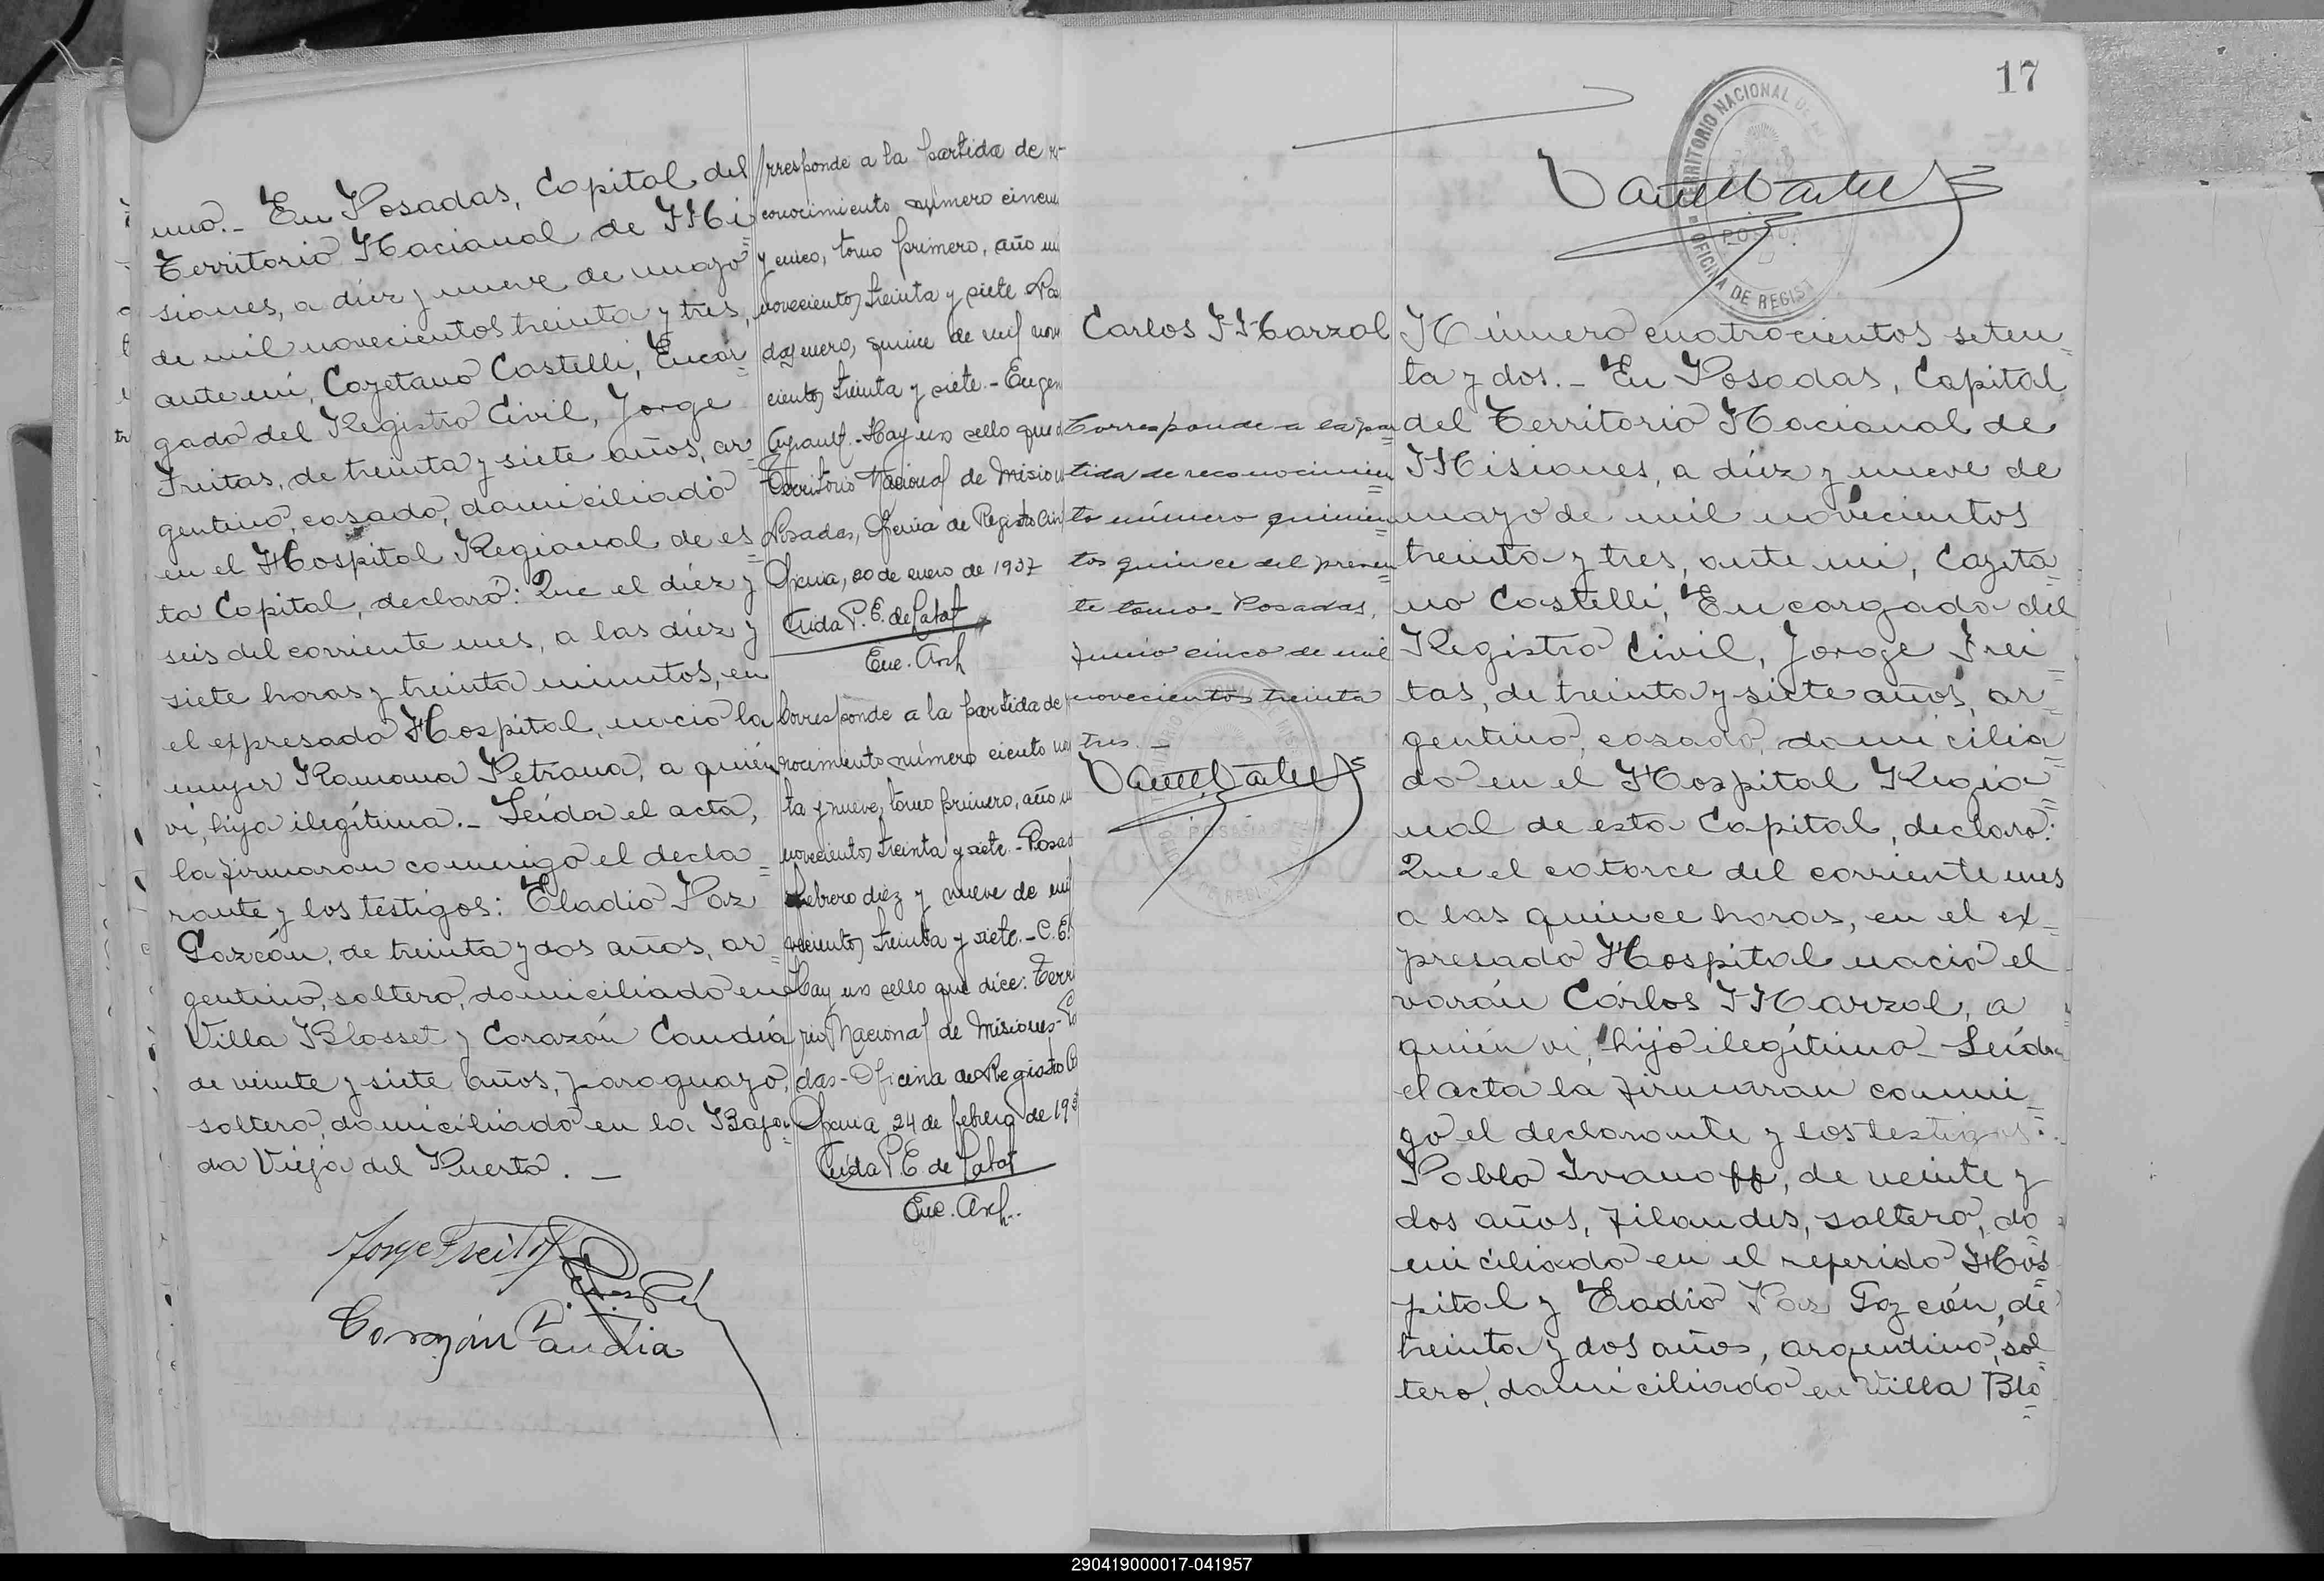 uno.- En Posadas, Capital del
Territorio Nacional de Mi=
siones, a diez y nueve de mayo
de mil novecientos treinta y tres,
ante mi, Cayetano Castelli, Encar=
gado del Registro Civil, Jorge
Freitas, de treinta y siete años, ar=
gentino, casado, domiciliado
en el Hospital Regional de es=
ta Capital, declaró: Que el diez y
seis del corriente mes, a las diez y
siete horas y treinta minutos, en
el expresado Hospital, nació la
mujer Ramona Petrona, a quién
vi, hija ilegítima.- Leída el acta,
la firmaron conmigo el decla=
rante y los testigos: Eladio Paz
Gazcón, de treinta y dos años, ar=
gentino, soltero, domiciliado en
Villa Blosset y Corazón Candia
de veinte y siete años, paraguayo,
soltero, domiciliado en la Baja=
da Vieja del Puerto.-
Jorge Freitas
Corazón Candia
rresponde a la partida de re-
conocimiento número cincu
y cinco, tomo primero, año mi
novecientos treinta y siete Po
enero, quince de mil nove
cientos treinta y siete.- Eugen
Hay un sello que d
Territorio Nacional de Mision
Posadas, Oficina de Registro Civi
Oficina, 20 de enero de 1937
Enc. Arch
Corresponde a la partida de
nocimiento número ciento no
ta y nueve, tomo primero, año m
novecientos treinta y siete.- Posad
febrero diez y nueve de mil
vecientos treinta y siete.- C. E.
Hay un sello que dice: Terri
rio Nacional de Misiones- Po
das- Oficina de Registro C
Oficina, 24 de febrero de 193
Enc. Arch.
17
TERRITORIO NACIONAL DE MI
POSADAS
OFICINA DE REGIST
Carlos Marzal
Corresponde a la par
tida de reconocimien=
to número quinien=
tos quince del presen=
te tomo- Posadas,
Junio cinco de mil
novecientos treinta
tres.-
POSADAS
Número cuatrocientos seten=
ta y dos.- En Posadas, Capital
del Territorio Nacional de
Misiones, a diez y nueve de
mayo de mil novecientos
treinta y tres, ante mi, Cayeta=
no Castelli, Encargado del
Registro Civil, Jorge Frei=
tas, de treinta y siete años, ar=
gentino, casado, domicilia=
do en el Hospital Regio=
nal de esta Capital, declaro:
Que el catorce del corriente mes
a las quince horas, en el ex=
presado Hospital nació el
varón Cárlos Marzal, a
quién vi, hijo ilegítimo- Leída
el acta la firmaron conmi=
go el declarante y los testigos:
Pablo Ivanoff, de veinte y
dos años, filandes, soltero, do=
miciliado en el referido Hos=
pital y Eladio Paz Gazcón, de
treinta y dos años, argentino, sol=
tero, domiciliado en Villa Blo=
290419000017-041957